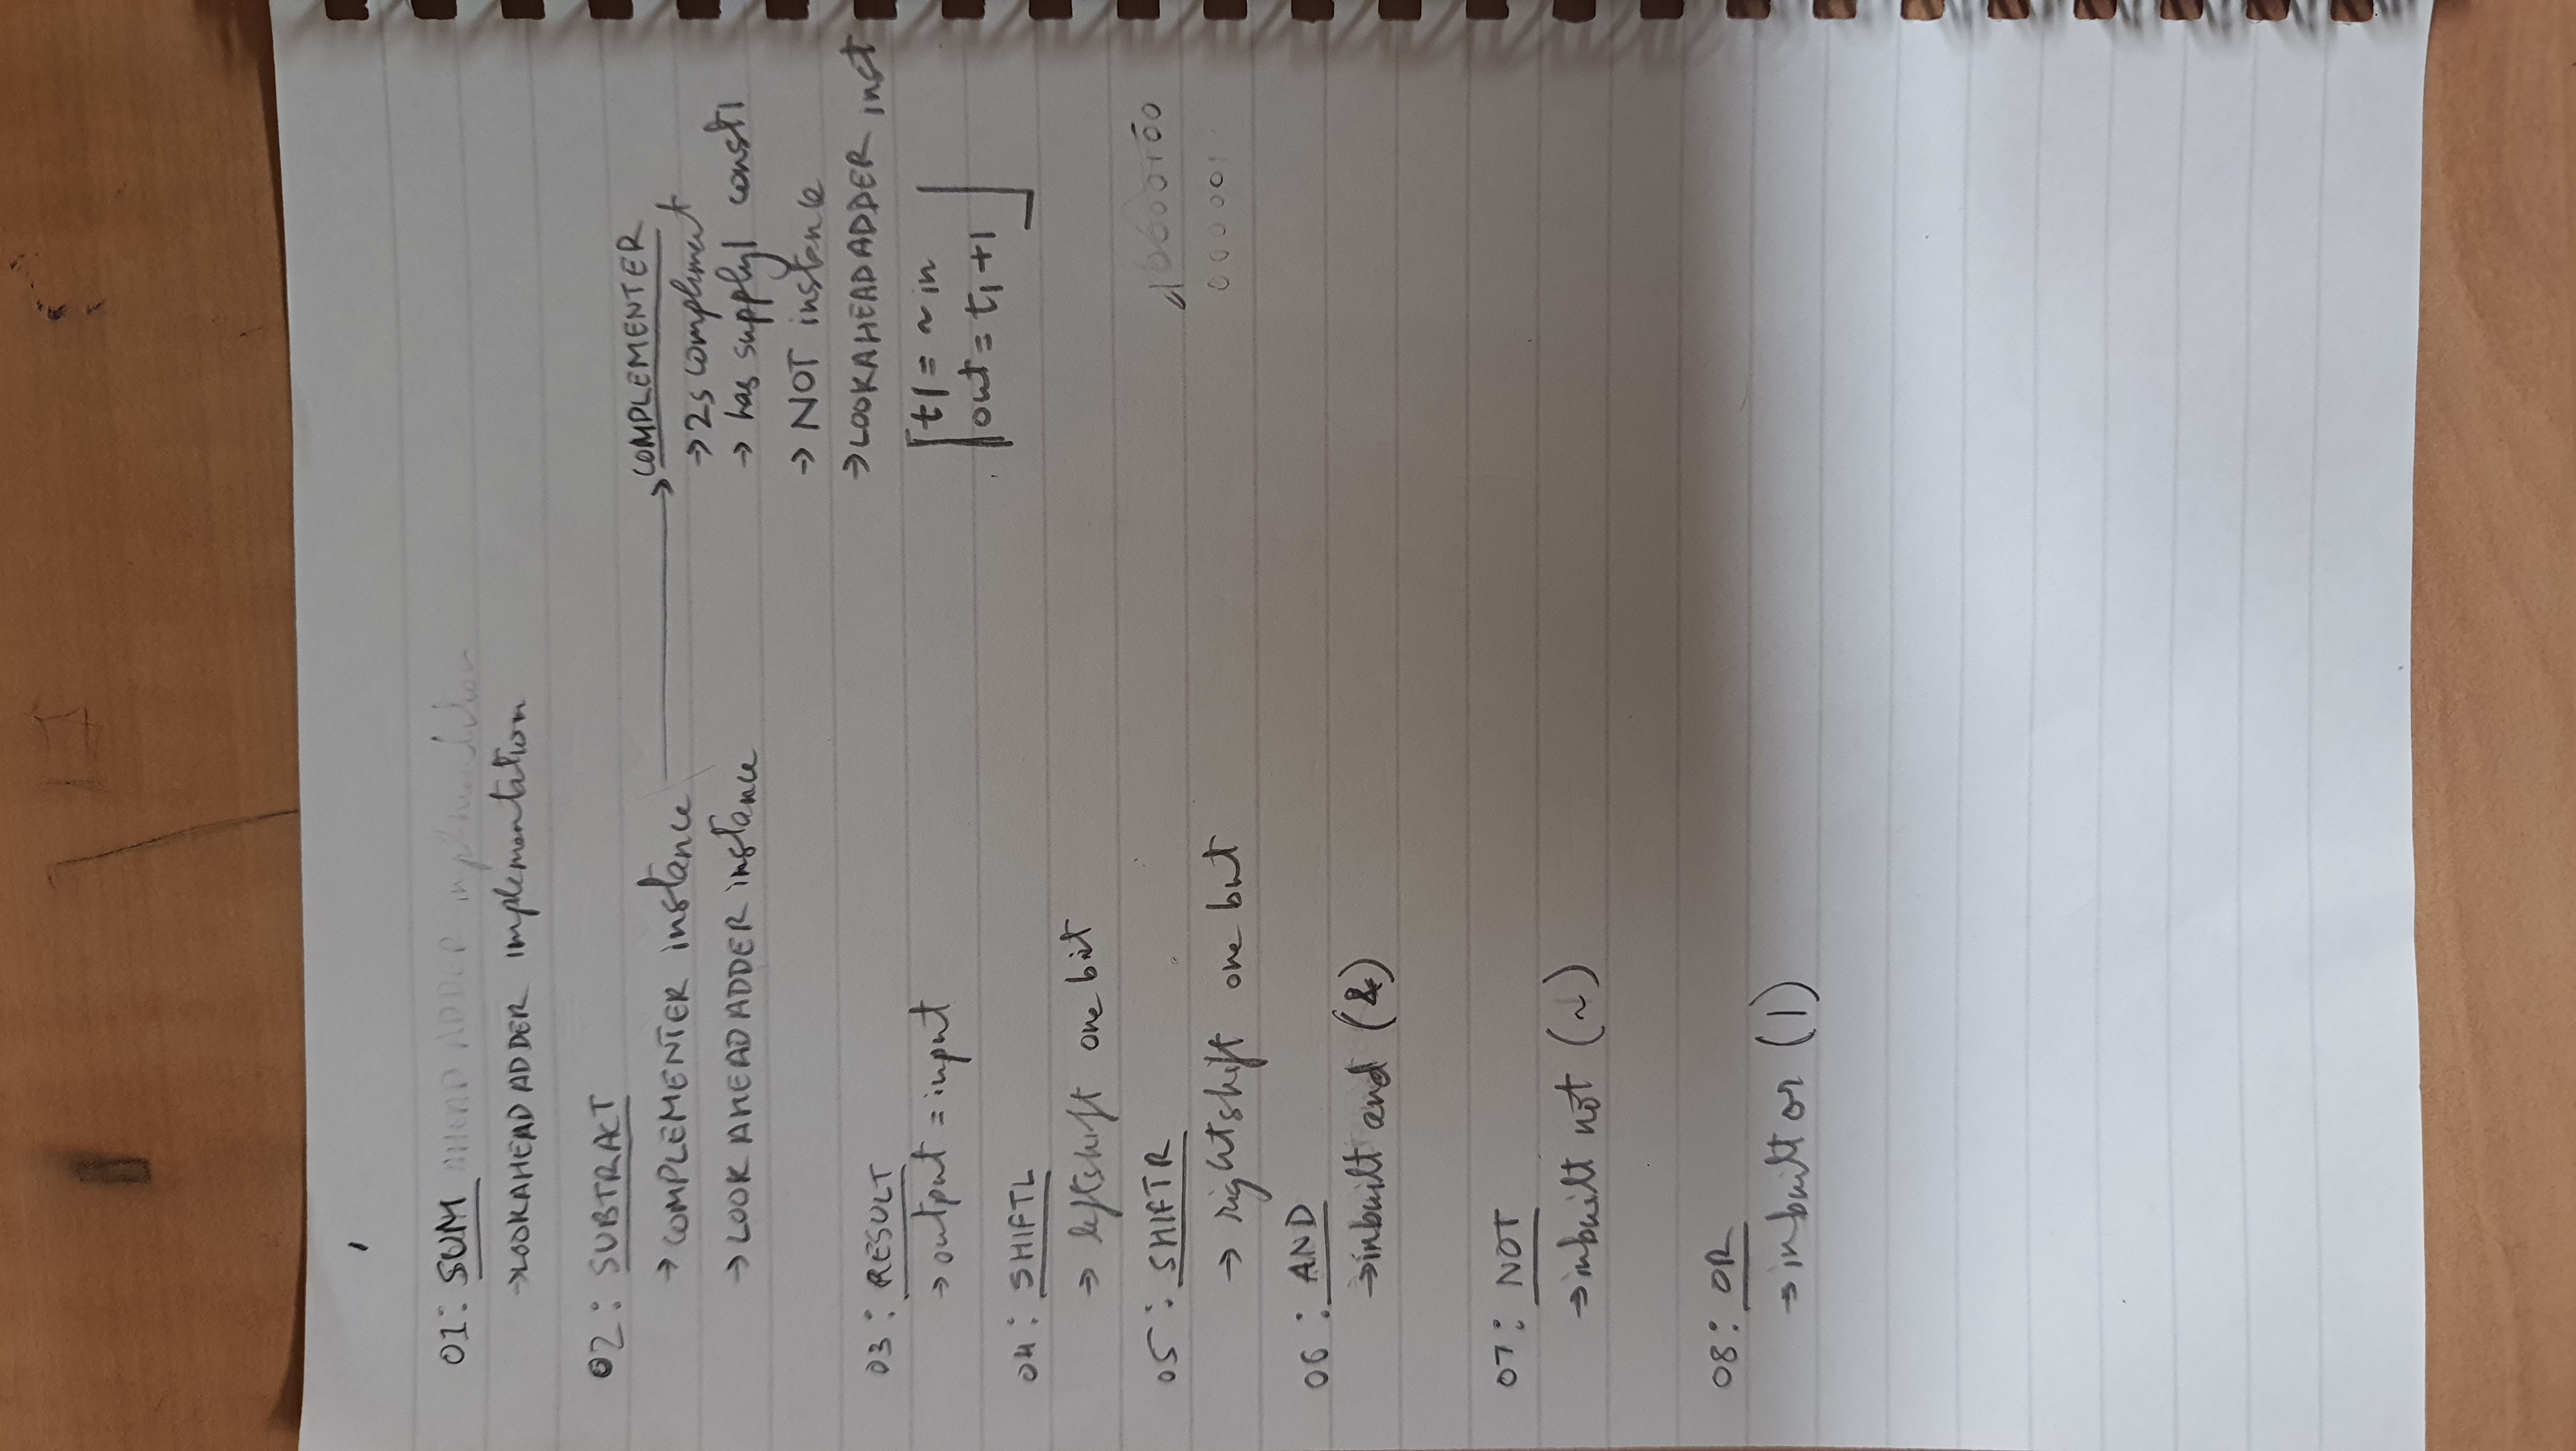 01: SUM AHEAD ADDER implementation
→LOOKAHEAD ADDER implementation
02: SUBTRACT
→ COMPLEMENTER instance
→ LOOK AHEAD ADDER instance
COMPLEMENTER
→ 2s complement
→ has supply1 const1
→ NOT instance
→ LOOKAHEAD ADDER inst
t1 = ~ in
out = t1 + 1
03: RESULT
→ output = input
04: SHIFTL
→ leftshift one bit
05: SHIFTR
→ rightshift one but
06: AND
→inbuilt and (&)
07: NOT
→inbuilt not (~)
08: OR
→ inbuilt or (|)